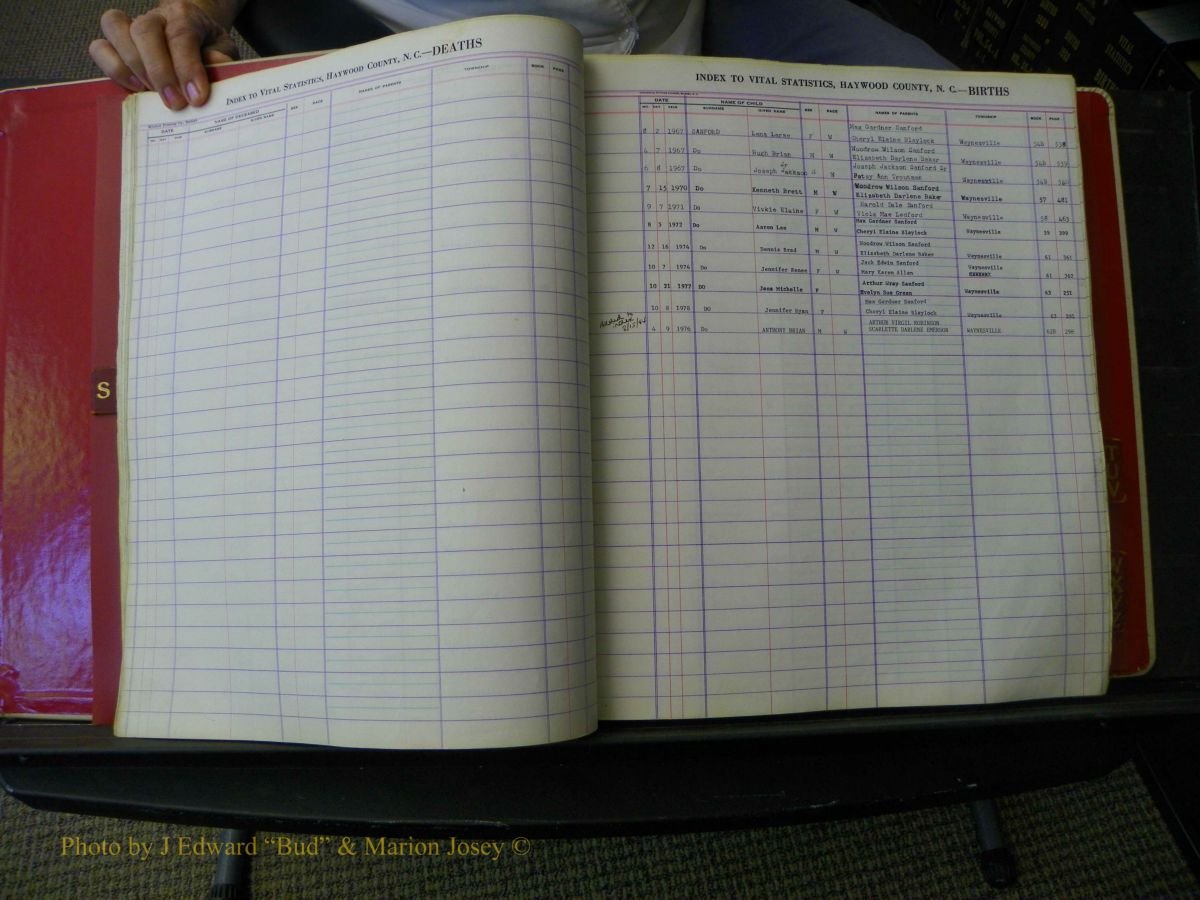 INDEX TO VITAL STATISTICS, HAYWOOD COUNTY, N. C.—DEATHS
DATE NAME OF DECEASED SEX RACE NAME OF PARENTS TOWNSHIP BOOK PAGE
SURNAME GIVEN NAME
S
INDEX TO VITAL STATISTICS, HAYWOOD COUNTY, N. C.—BIRTHS
DATE NAME OF CHILD SEX RACE NAMES OF PARENTS TOWNSHIP BOOK PAGE
MO. DAY YEAR SURNAME GIVEN NAME
Max Gardner Sanford
8 2 1967 SANFORD Lana F W Cheryl Elaine Blaylock Waynesville 54B
Woodrow Wilson Sanford
4 7 1967 Do Hugh Brian M W Elizabeth Darlene Baker Waynesville 54B 539
Jr Joseph Jackson Sanford Sr
6 8 1967 Do Joseph Jackson W Patsy Ann Troutman Waynesville 54B
Woodrow Wilson Sanford
7 15 1970 Do Kenneth Brett M W Elizabeth Darlene Baker Waynesville 57 481
Harold Dale Sanford
9 7 1971 Do Vivkie Elaine F W Viola Mae Ledford Waynesville 58 463
Max Gardner Sanford
8 3 1972 Do Aaron Lee M W Cheryl Elaine Blaylock Waynesville 59
Woodrow Wilson Sanford
12 16 1974 Do Dennis Brad M W Elizabeth Darlene Baker Waynesville 61 361
Jack Edwin Sanford
10 7 1974 Do Jennifer Renee F W Mary Karen Allen Waynesville 61 362
Arthur Wray Sanford
10 21 1977 Do Jana Michelle F Evelyn Sue Green Waynesville 63 251
Max Gardner Sanford
10 8 1978 DO Jennifer Ryan F Cheryl Elaine Blaylock Waynesville 63
ARTHUR VIRGIL ROBINSON
4 9 1976 Do ANTHONY BRIAN M W SCARLETTE DARLENE EMERSON WAYNESVILLE 62B 296
T
U
V
VITAL STATISTICS
Photo by J Edward “Bud” & Marion Josey ©